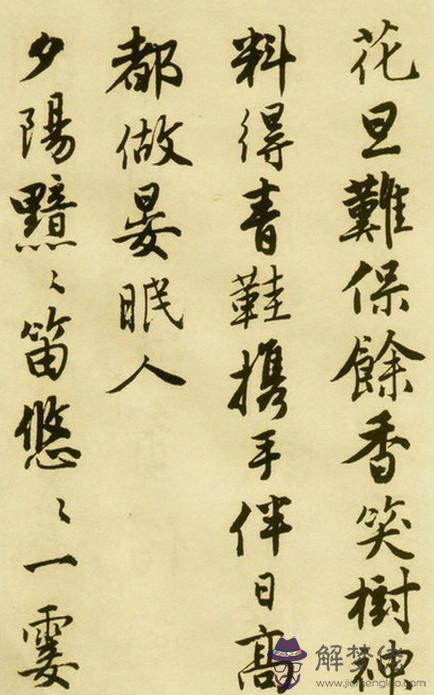 花旦難保餘香笑樹
料得青鞋携手伴日高
都做晏眠人
夕陽黯〻笛悠〻一霎
解梦佬
www.jiemenglao.com